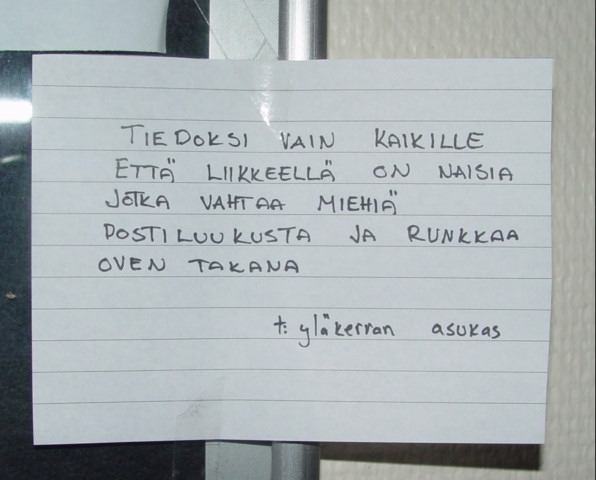 TIEDOKSI VAIN KAIKILLE
ETTÄ LIIKKEELLÄ ON NAISIA
JOTKA VAHTAA MIEHIÄ
POSTILUUKUSTA JA RUNKKAA
OVEN TAKANA
t: yläkerran asukas